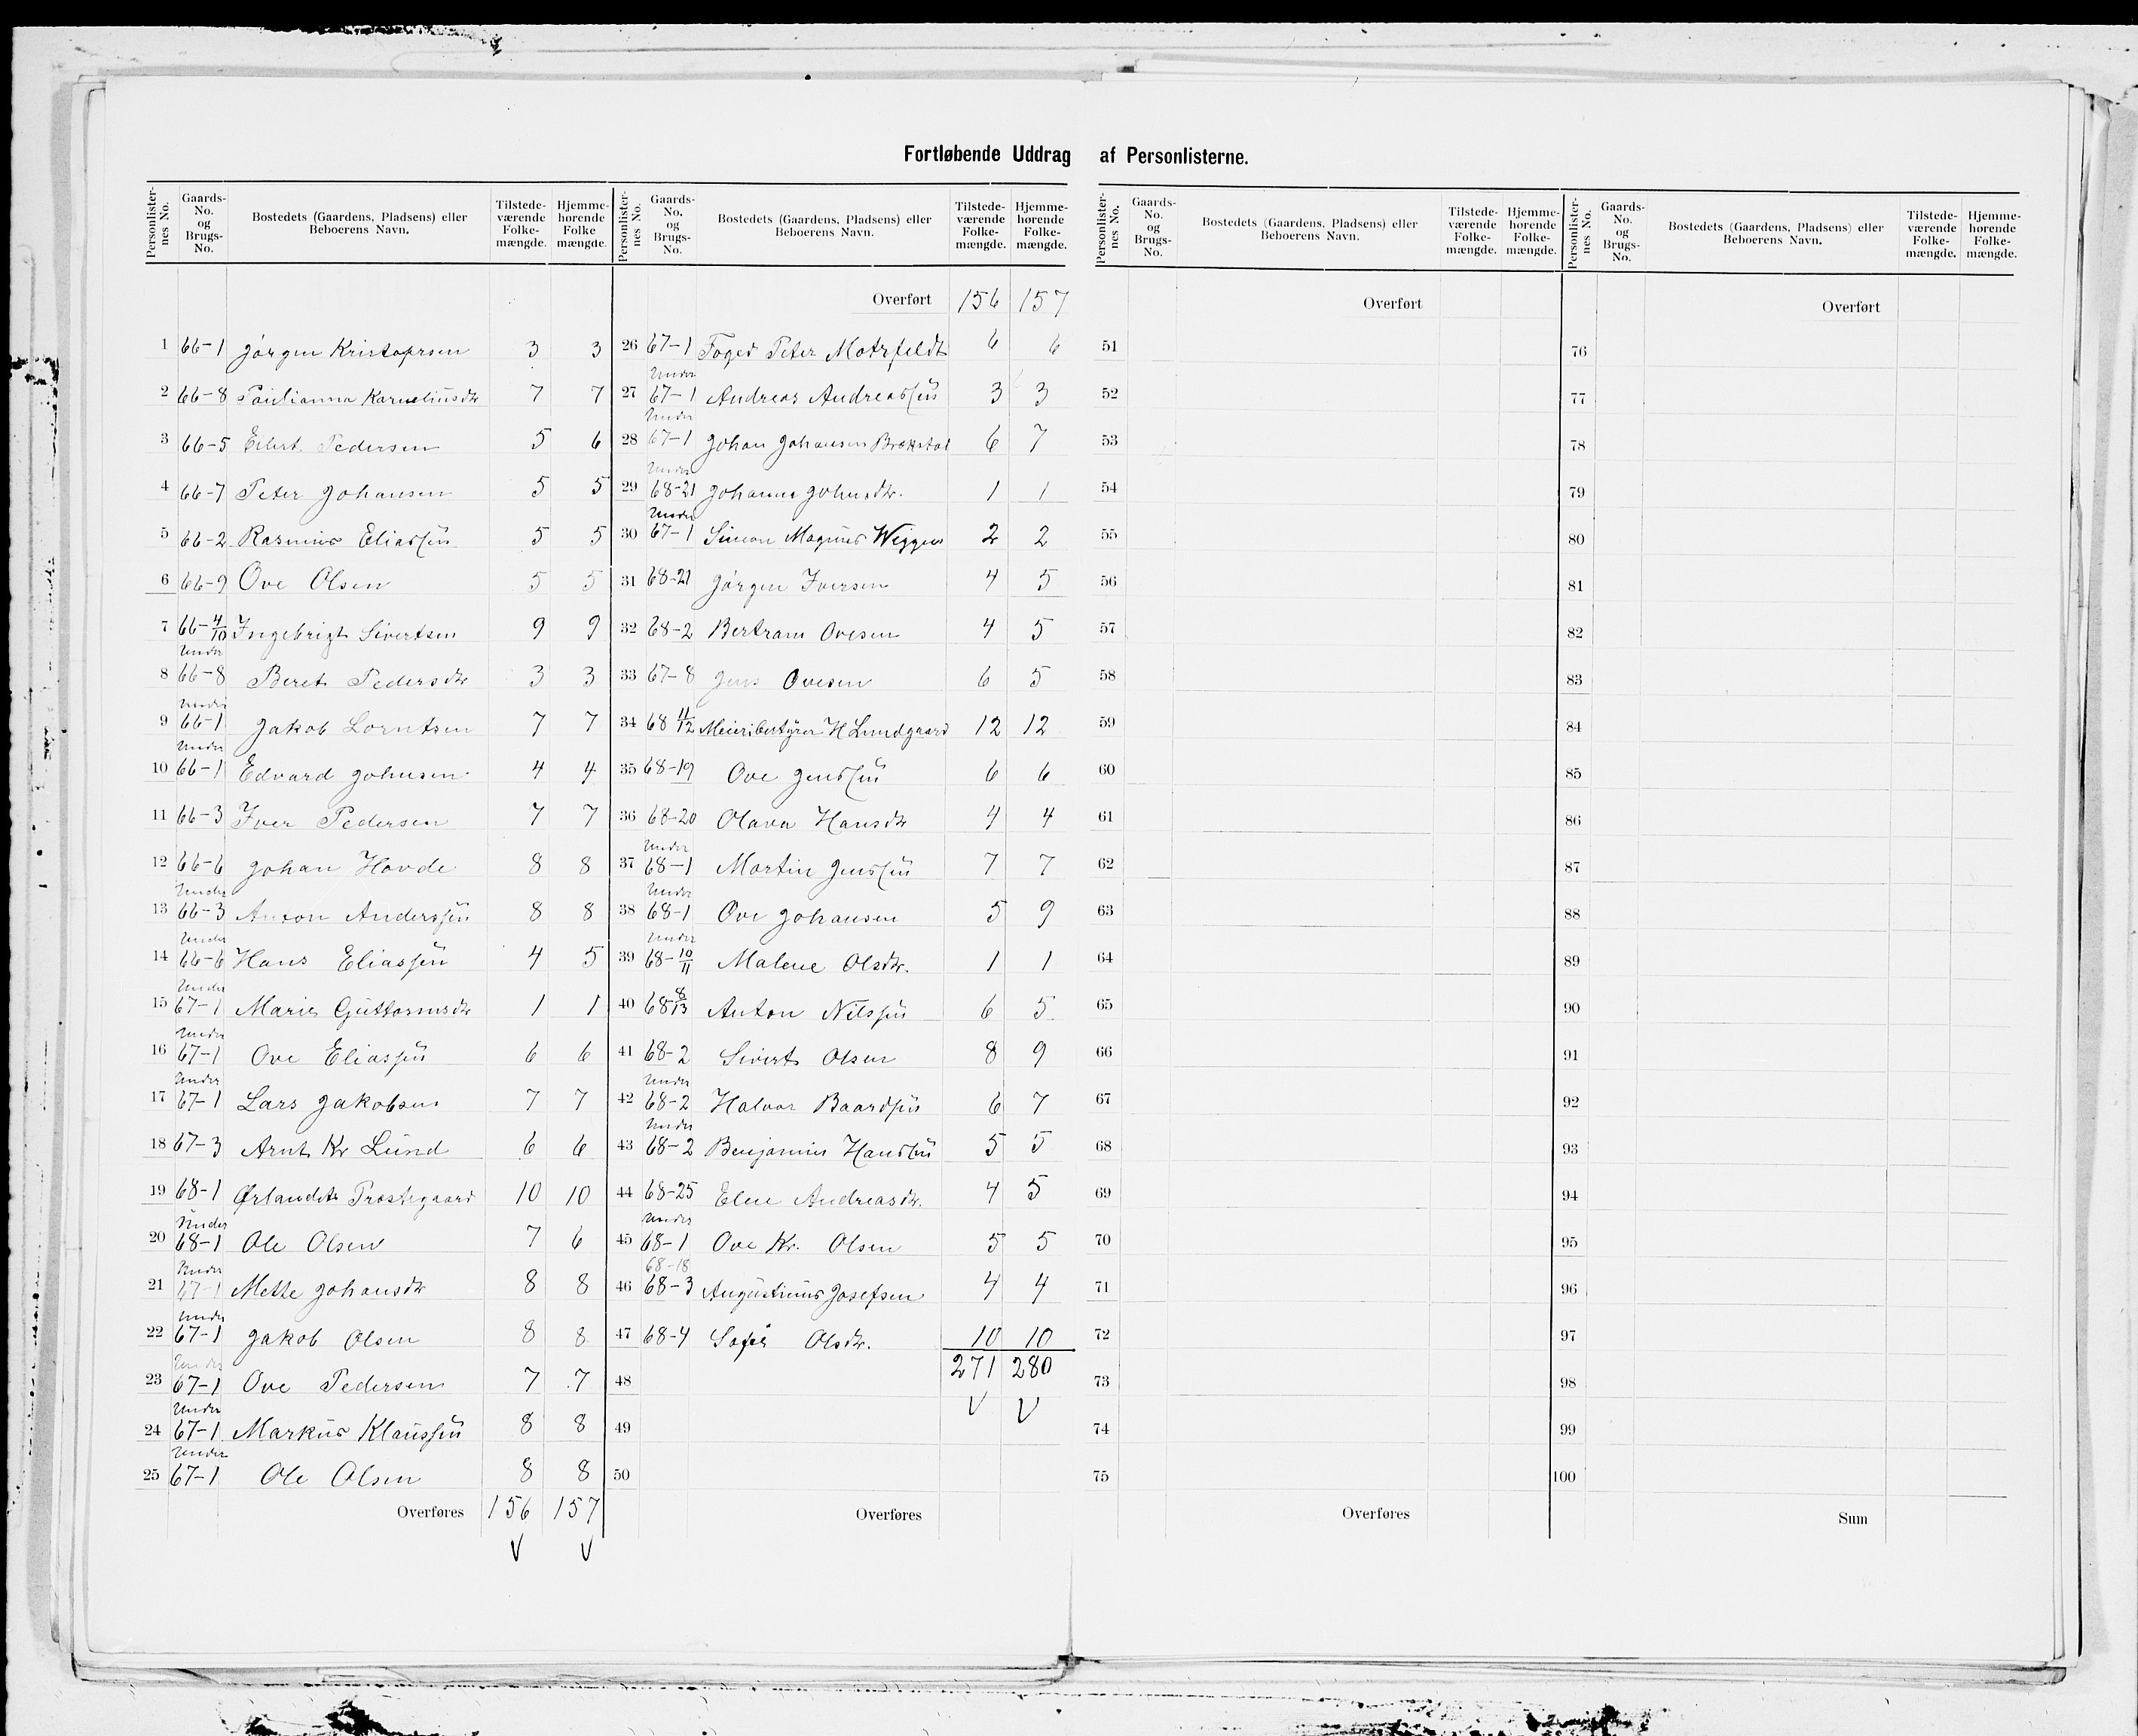 Fortløbende Uddrag af Personlisterne.
Personlisternes No. Gaards-No. og Brugs-No. Bostedets (Gaardens, Pladsens) eller Beboerens Navn. Tilstedeværende Folkemængde. Hjemmehørende Folkemængde.
1 66-1 Jørgen Kristofersen 3 3
2 66-8 Paulianna Korneliusdtr 7 7
3 66-5 Eilert Pedersen 5 6
4 66-7 Peter Johansen 5 5
5 66-2 Rasmus Eliassøn 5 5
6 66-9 Ove Olsen 5 5
7 66-4/10 Ingebrigt Sivertsen 9 9
Under
8 66-8 Beret Pedersdtr 3 3
Under
9 66-1 Jakob Lorntsen 7 7
Under
10 66-1 Edvard Johnsen 4 4
11 66-3 Iver Pedersen 7 7
12 66-6 Johan Hovde 8 8
Under
13 66-3 Anton Anderssøn 8 8
Under
14 66-6 Hans Eliassøn 4 5
Under
15 67-1 Marie Guttormsdtr 1 1
Under
16 67-1 Ove Eliassøn 6 6
Under
17 67-1 Lars Jakobsen 7 7
18 67-3 Arnt Kr Lund 6 6
19 68-1 Ørlandets Prestegaard 10 10
Under
20 68-1 Ole Olsen 7 6
Under
21 67-1 Mette Johansdtr 8 8
Under
22 67-1 Jakob Olsen 8 8
Under
23 67-1 Ove Pedersen 7 7
Under
24 67-1 Markus Klaussøn 8 8
Under
25 67-1 Ole Olsen 8 8
Overføres 156 157
V V
Personlisternes No. Gaards-No. og Brugs-No. Bostedets (Gaardens, Pladsens) eller Beboerens Navn. Tilstedeværende Folkemængde. Hjemmehørende Folkemængde.
Overført 156 157
26 67-1 Foged Peter Motzfeldt 6 6
Under
27 67-1 Andreas Andreassøn 3 3
Under
28 67-1 Johan Johansen 6 7
Under
29 68-21 Johanna Johnsdtr. 1 1
Under
30 67-1 Simon Magnus Wiggen 2 2
31 68-21 Jørgen Iversen 4 5
32 68-2 Bertram Ovesen 4 5
33 67-8 Jens Ovesen 6 5
34 68 11/12 Meieribestyrer H Lundgaard 12 12
35 68-19 Ove Jenssøn 6 6
36 68-20 Olava Hansdtr 4 4
Under
37 68-1 Martin Jenssøn 7 7
Under
38 68-1 Ove Johansen 5 9
Under
39 68-10/11 Malene Olsdtr. 1 1
40 68 8/13 Anton Nilssøn 6 5
41 68-2 Sivert Olsen 8 9
Under
42 68-2 Halvor Baardsøn 6 7
Under
43 68-2 Benjamin Hanssøn 5 5
44 68-25 Elen Andreasdtr. 4 5
Under
45 68-1 Ove Kr. Olsen 5 5
68-18
46 68-3 Augustinus Josefsen 4 4
47 68-4 Sofie Olsdtr. 10 10
271 280
48
V V
49
50
Overføres
Personlisternes No. Gaards-No. og Brugs-No. Bostedets (Gaardens, Pladsens) eller Beboerens Navn. Tilstedeværende Folkemængde. Hjemmehørende Folkemængde.
Overført
51
52
53
54
55
56
57
58
59
60
61
62
63
64
65
66
67
68
69
70
71
72
73
74
75
Overføres
Personlisternes No. Gaards-No. og Brugs-No. Bostedets (Gaardens, Pladsens) eller Beboerens Navn. Tilstedeværende Folkemængde. Hjemmehørende Folkemængde.
Overført
76
77
78
79
80
81
82
83
84
85
86
87
88
89
90
91
92
93
94
95
96
97
98
99
100
Sum